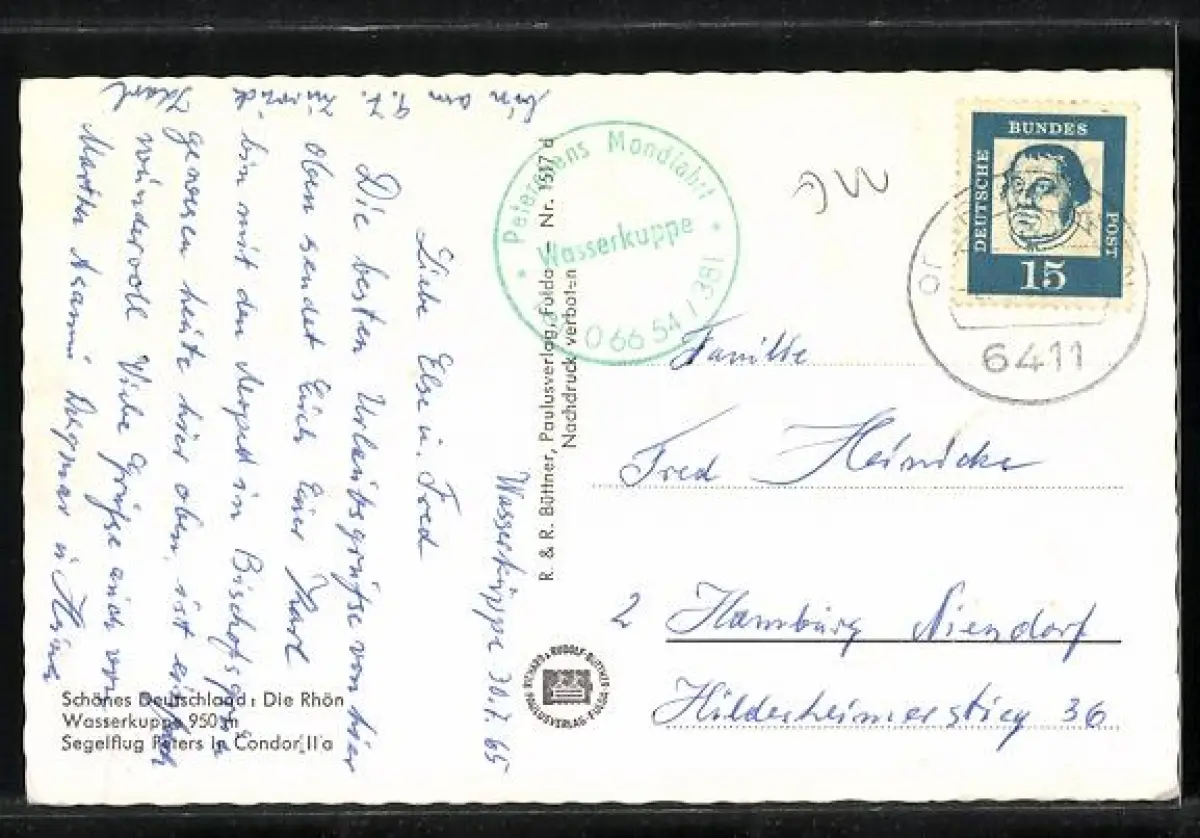 Wasserkuppe 30.7.65
Liebe Else u. Fred
Die besten Urlaubsgrüße von hier
oben sendet Euch Euer Karl
bin mit den Moped in
genossen heute hier oben, ist einfach
wundervoll Viele Grüße auch von
Martha u Heine
bin am 9.7. zurück
Karl
Schönes Deutschland: Die Rhön
Wasserkuppe 950 m
Segelflug Peters in Condor II a
R. & R. Büttner, Paulusverlag, Fulda — Nr. 1517 d
Nachdruck verboten
RICHARD & RUDOLF BÜTTNER
PAULUSVERLAG · FULDA
Peterchens Mondfahrt
Wasserkuppe
0 66 54 / 381
DEUTSCHE
BUNDES
POST
15
6411
Familie
Fred Heinicke
2 Hamburg Niendorf
Hildesheimerstieg 36